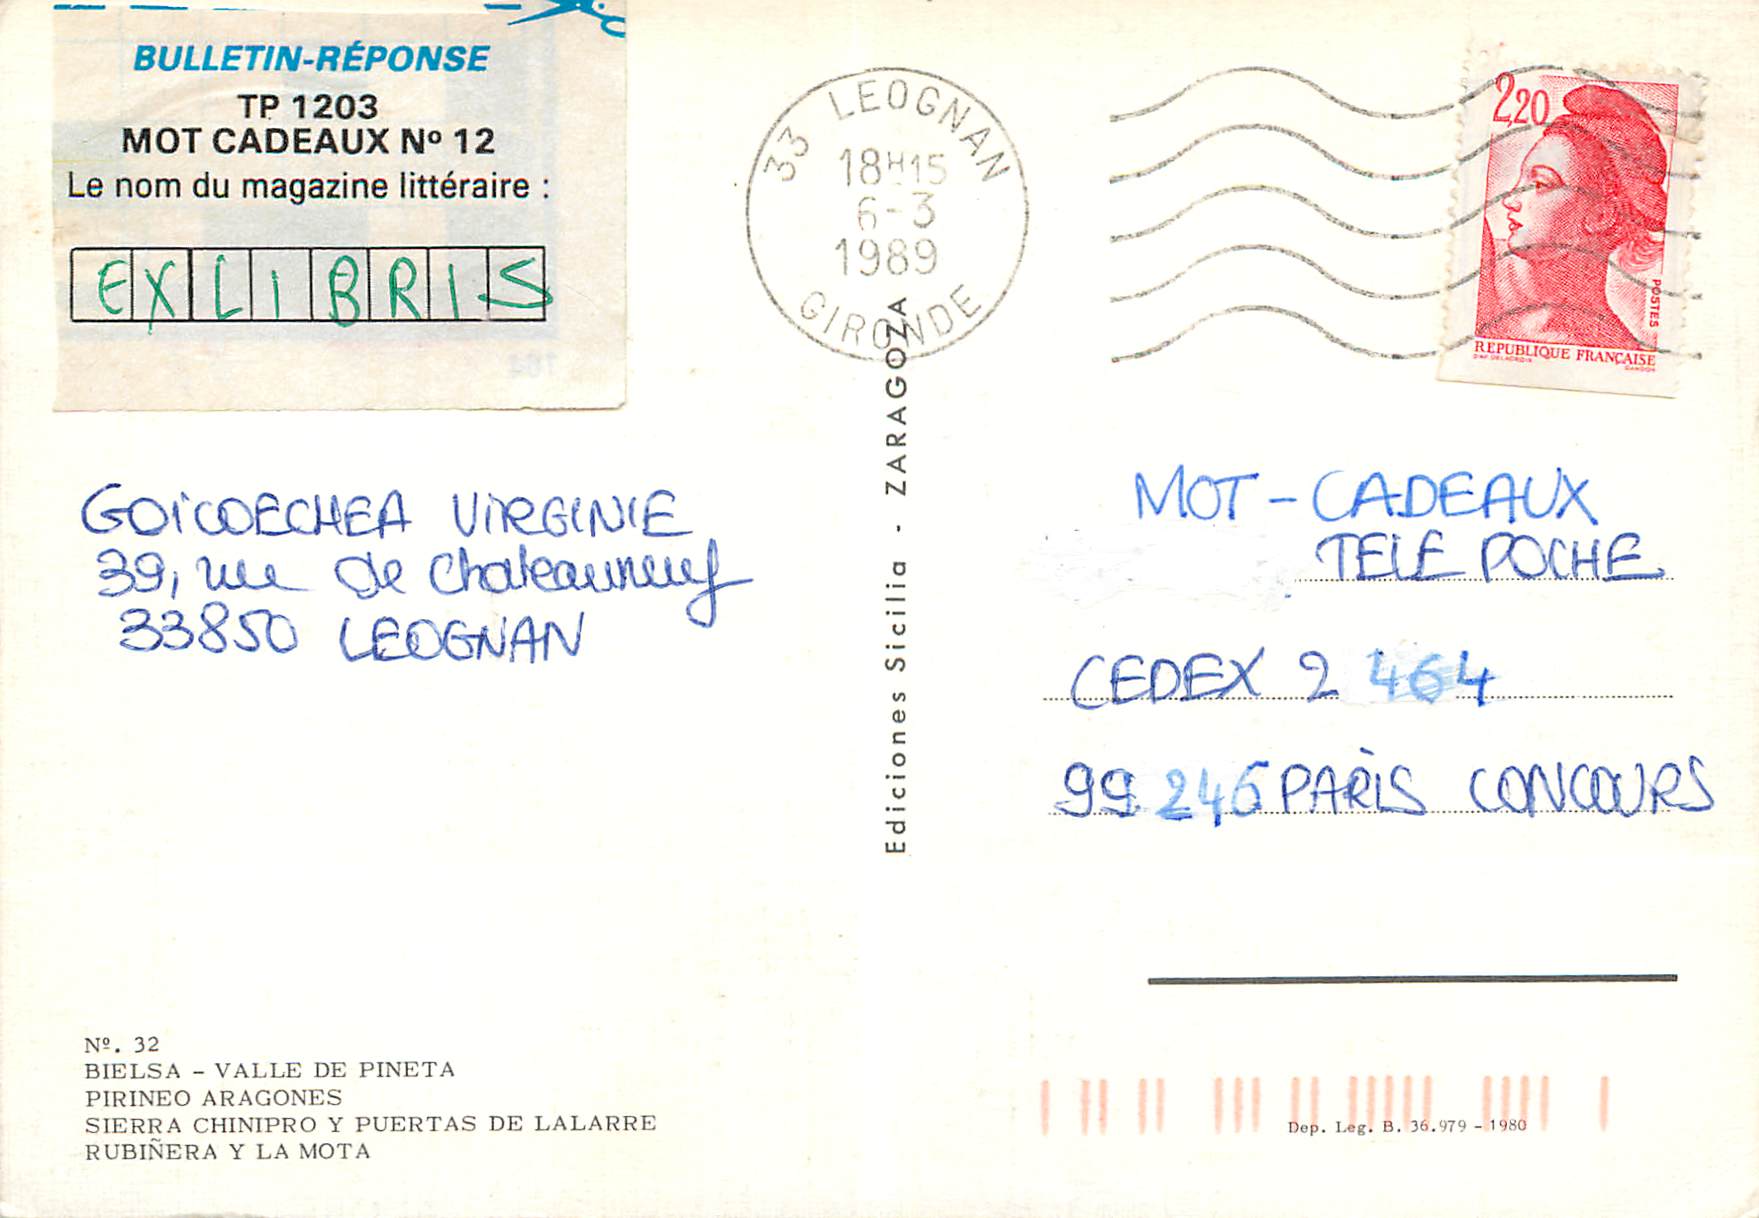 BULLETIN-RÉPONSE
TP 1203
MOT CADEAUX Nº 12
Le nom du magazine littéraire :
EXLIBRIS
33 LEOGNAN
18H15
6-3
1989
GIRONDE
2,20
POSTES
REPUBLIQUE FRANÇAISE
D'AP. DELACROIX
GANDON
GOICOECHEA VIRGINIE
39, rue de Chateauneuf
33850 LEOGNAN
Ediciones Sicilia - ZARAGOZA
MOT - CADEAUX
TELE POCHE
CEDEX 2 464
99246 PARIS CONCOURS
Nº. 32
BIELSA - VALLE DE PINETA
PIRINEO ARAGONES
SIERRA CHINIPRO Y PUERTAS DE LALARRE
RUBIÑERA Y LA MOTA
Dep. Leg. B. 36.979 - 1980